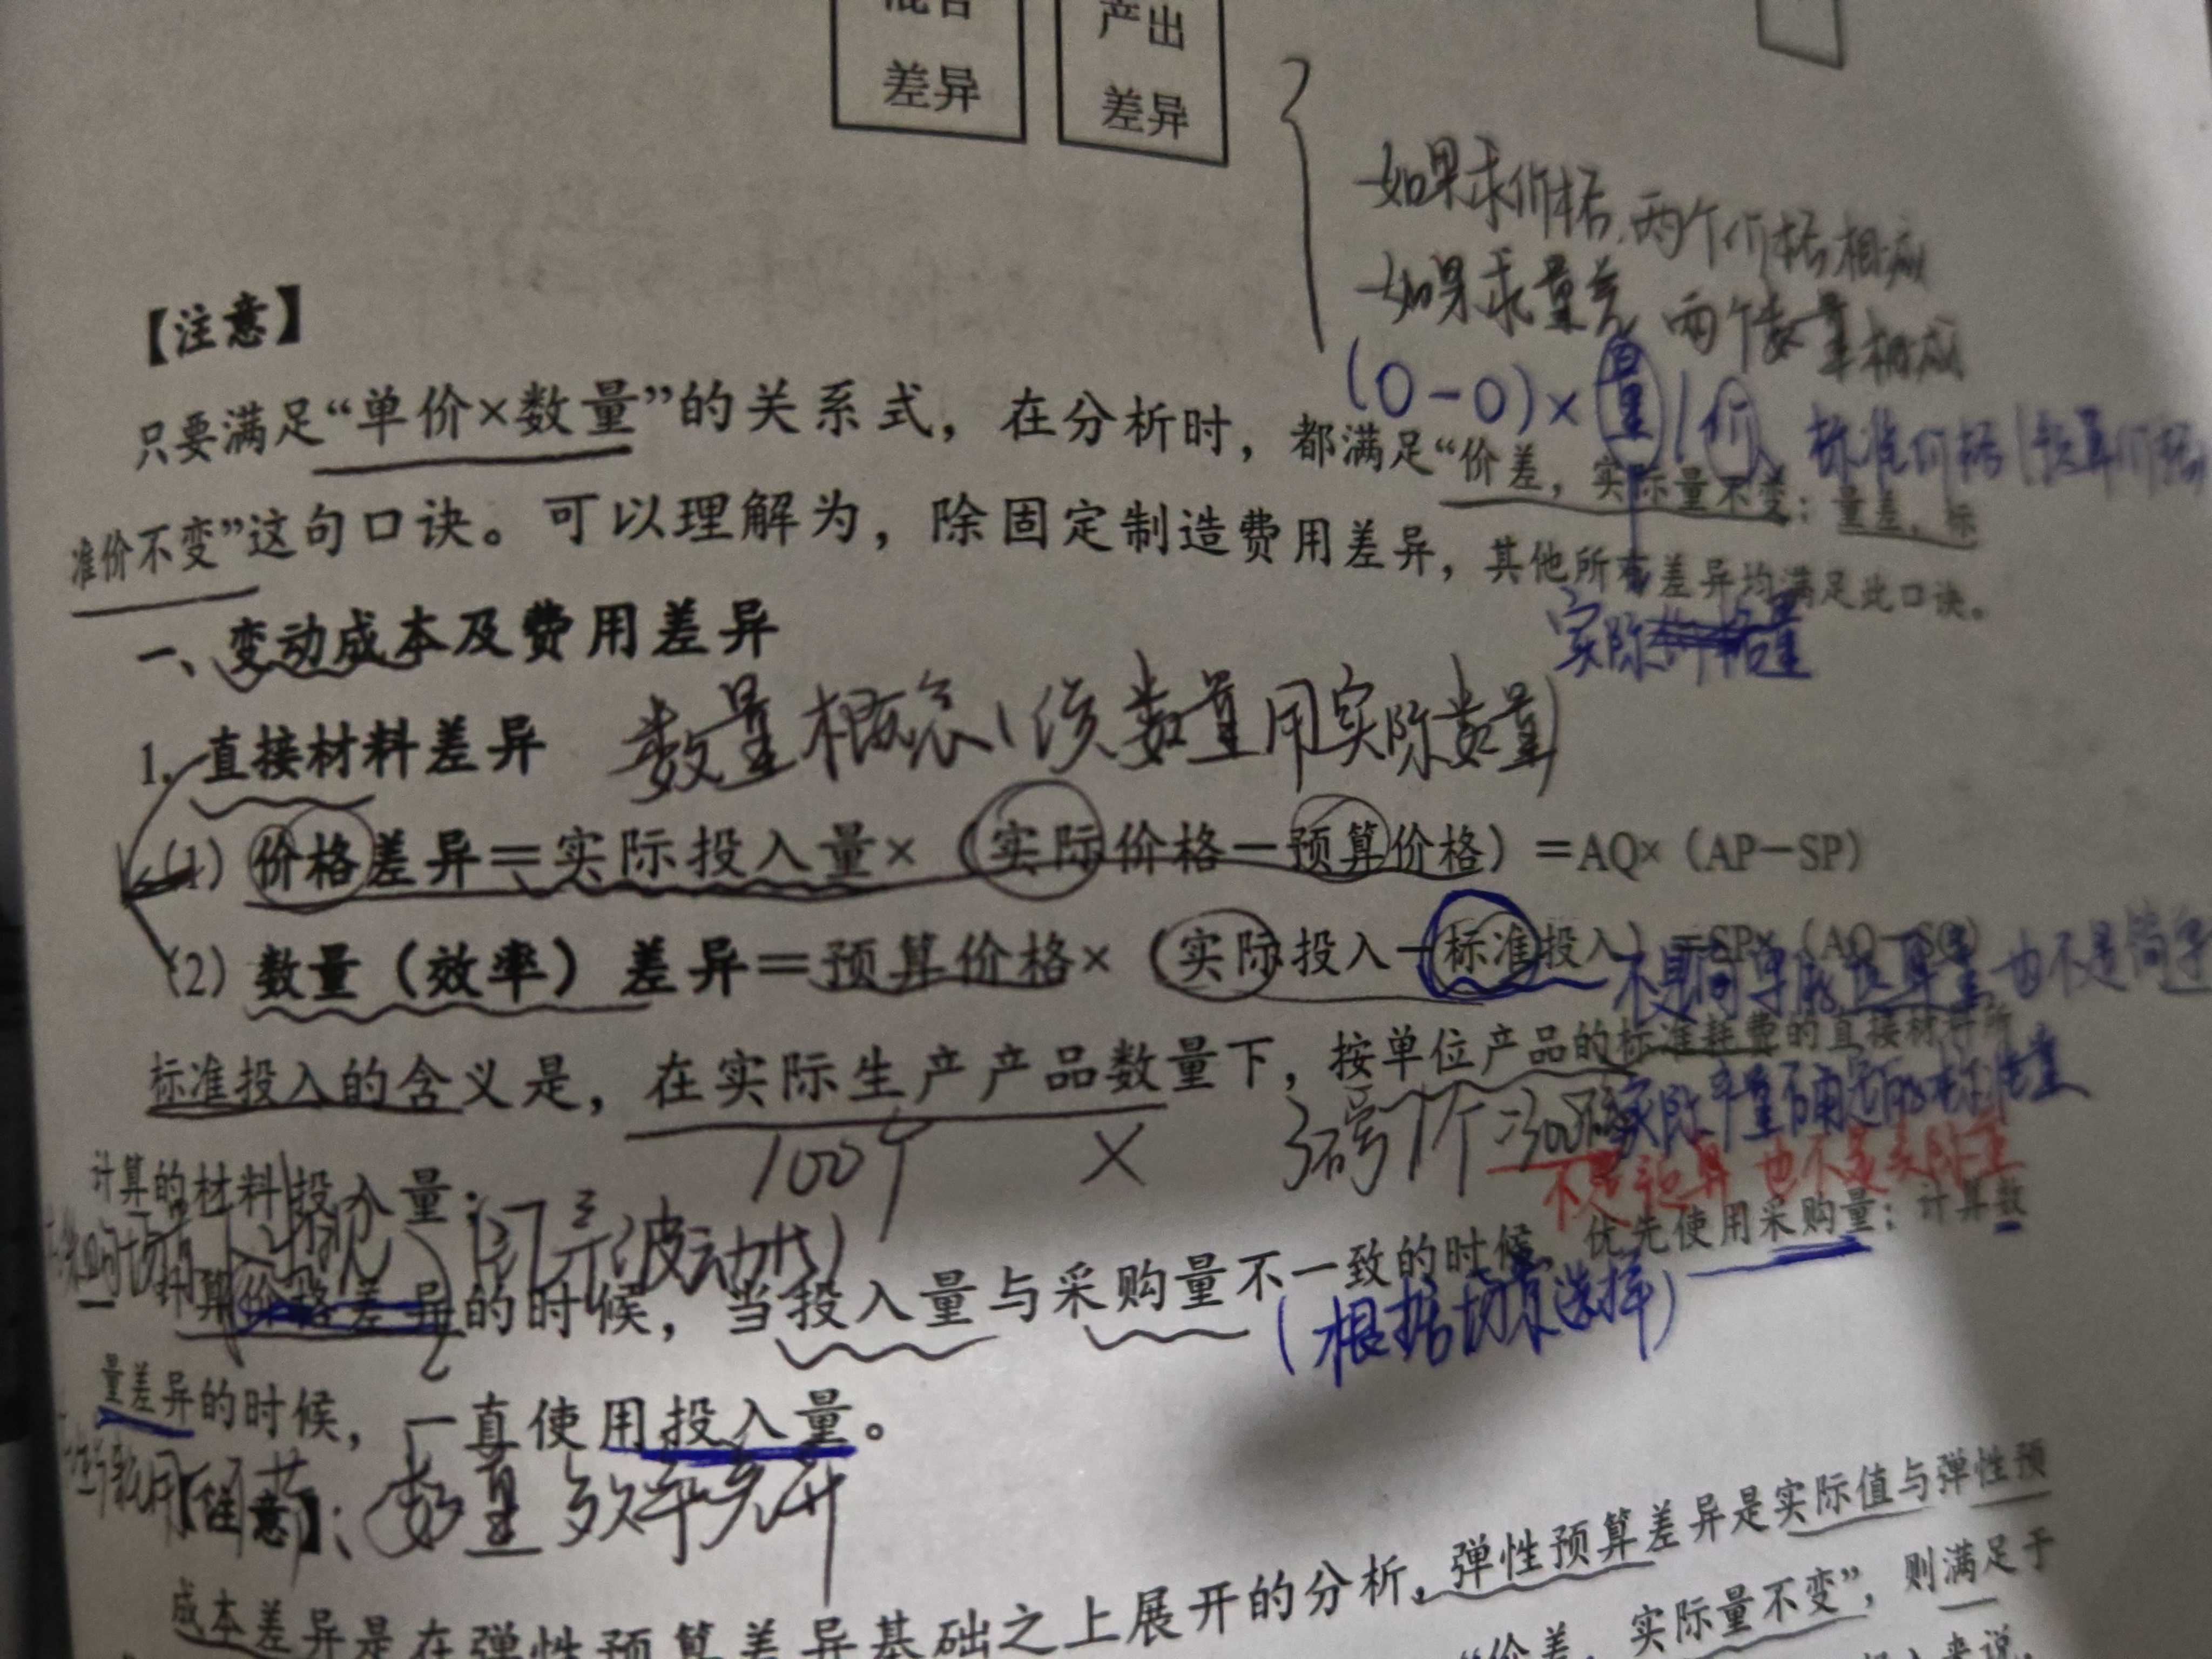 差异
产出
差异
如果求价格，两个价格相减
如果求量差 两个数量相减
(0-0)×量/价 标准价格(预算价格)
【注意】
只要满足“单价×数量”的关系式，在分析时，都满足“价差，实际量不变；量差，标
准价不变”这句口诀。可以理解为，除固定制造费用差异，其他所有差异均满足此口诀。
实际量
一、变动成本及费用差异
1. 直接材料差异 数量概念
数量用实际数量)
(1) 价格差异＝实际投入量×（实际价格－预算价格）＝AQ×（AP－SP）
(2) 数量（效率）差异＝预算价格×（实际投入－标准投入）＝SP×（AQ－SQ）
也不是简单
标准投入的含义是，在实际生产产品数量下，按单位产品的标准耗费的直接材料所
100个 × 3磅/个=300磅
计算的材料投入量；
计算价格差异的时候，当投入量与采购量不一致的时候，优先使用采购量；计算数
(根据场景选择)
量差异的时候，一直使用投入量。
【注意】
数量 效率
成本差异是在弹性预算差异基础之上展开的分析，弹性预算差异是实际值与弹性预
“价差，实际量不变”，则满足于
来说，